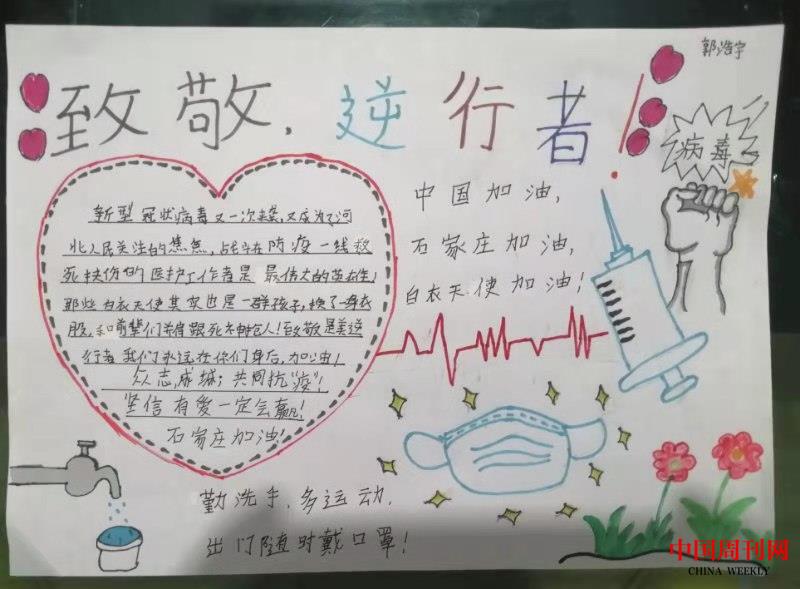 郭浩宇
致敬,逆行者!
病毒
中国加油,
石家庄加油,
白衣天使加油!
新型冠状病毒又一次来袭,又成为了河
北人民关注的焦点,战斗在防疫一线救
死扶伤的医护工作者是最伟大的英雄!
那些白衣天使其实也是一群孩子,换了一身衣
服,和前辈们一起跟死神抢人!致敬最美逆
行者我们永远在你们身后,加油!
众志成城;共同抗"疫"!
坚信有爱一定会赢!
石家庄加油!
勤洗手,多运动,
出门随时戴口罩!
中国周刊网
CHINA WEEKLY